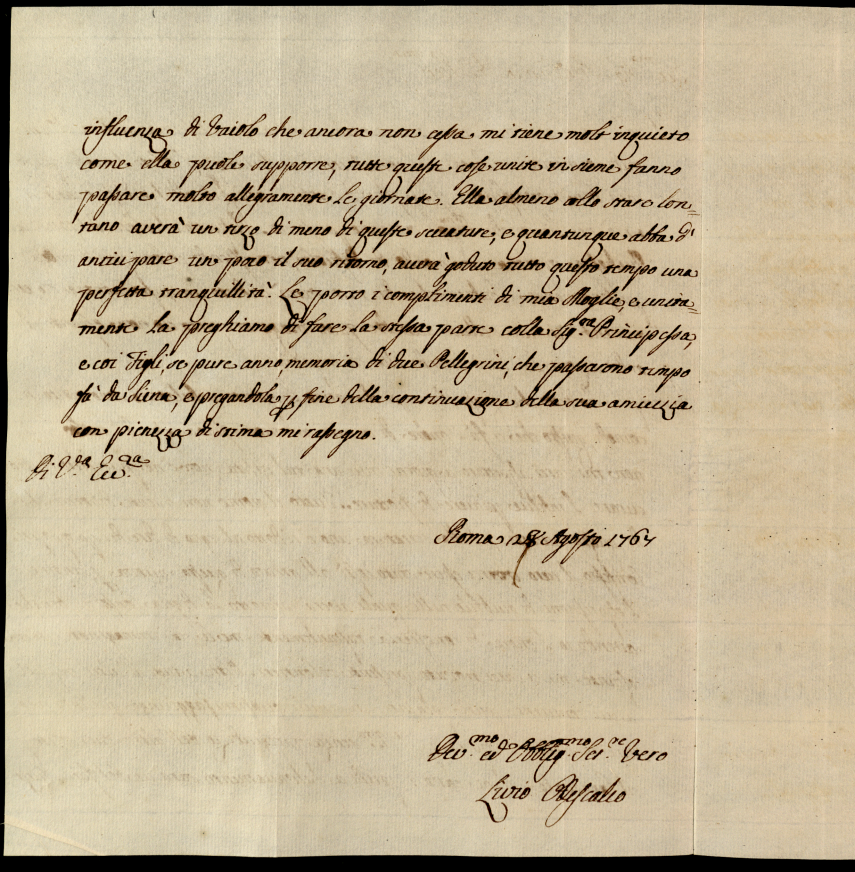 influenza di Vaiolo che ancora non cessa mi tiene molt'inquieto
come ella puole supporre, tutte queste cose unite insieme fanno
passare molto allegramente le giornate. Ella almeno collo stare lon=
tano averà un terzo di meno di queste seccature, e quantunque abba d'
anticipare un poco il suo ritorno, averà goduto tutto questo tempo una
perfetta tranquillità. Le porto i complimenti di mia Moglie, e unita=
mente La preghiamo di fare La stessa parte colla Sig.ra Principessa,
e coi Figli, se pure anno memoria di due Pellegrini, che passarono tempo
fà da Siena, e pregandola p fine della continuazione della sua amicizia
con pienezza di stima mi rassegno.
Di V.ra Ecc.za
Roma Agosto 1767
Dev.mo ed Obblig.mo Ser.re Vero
Livio Odescalco